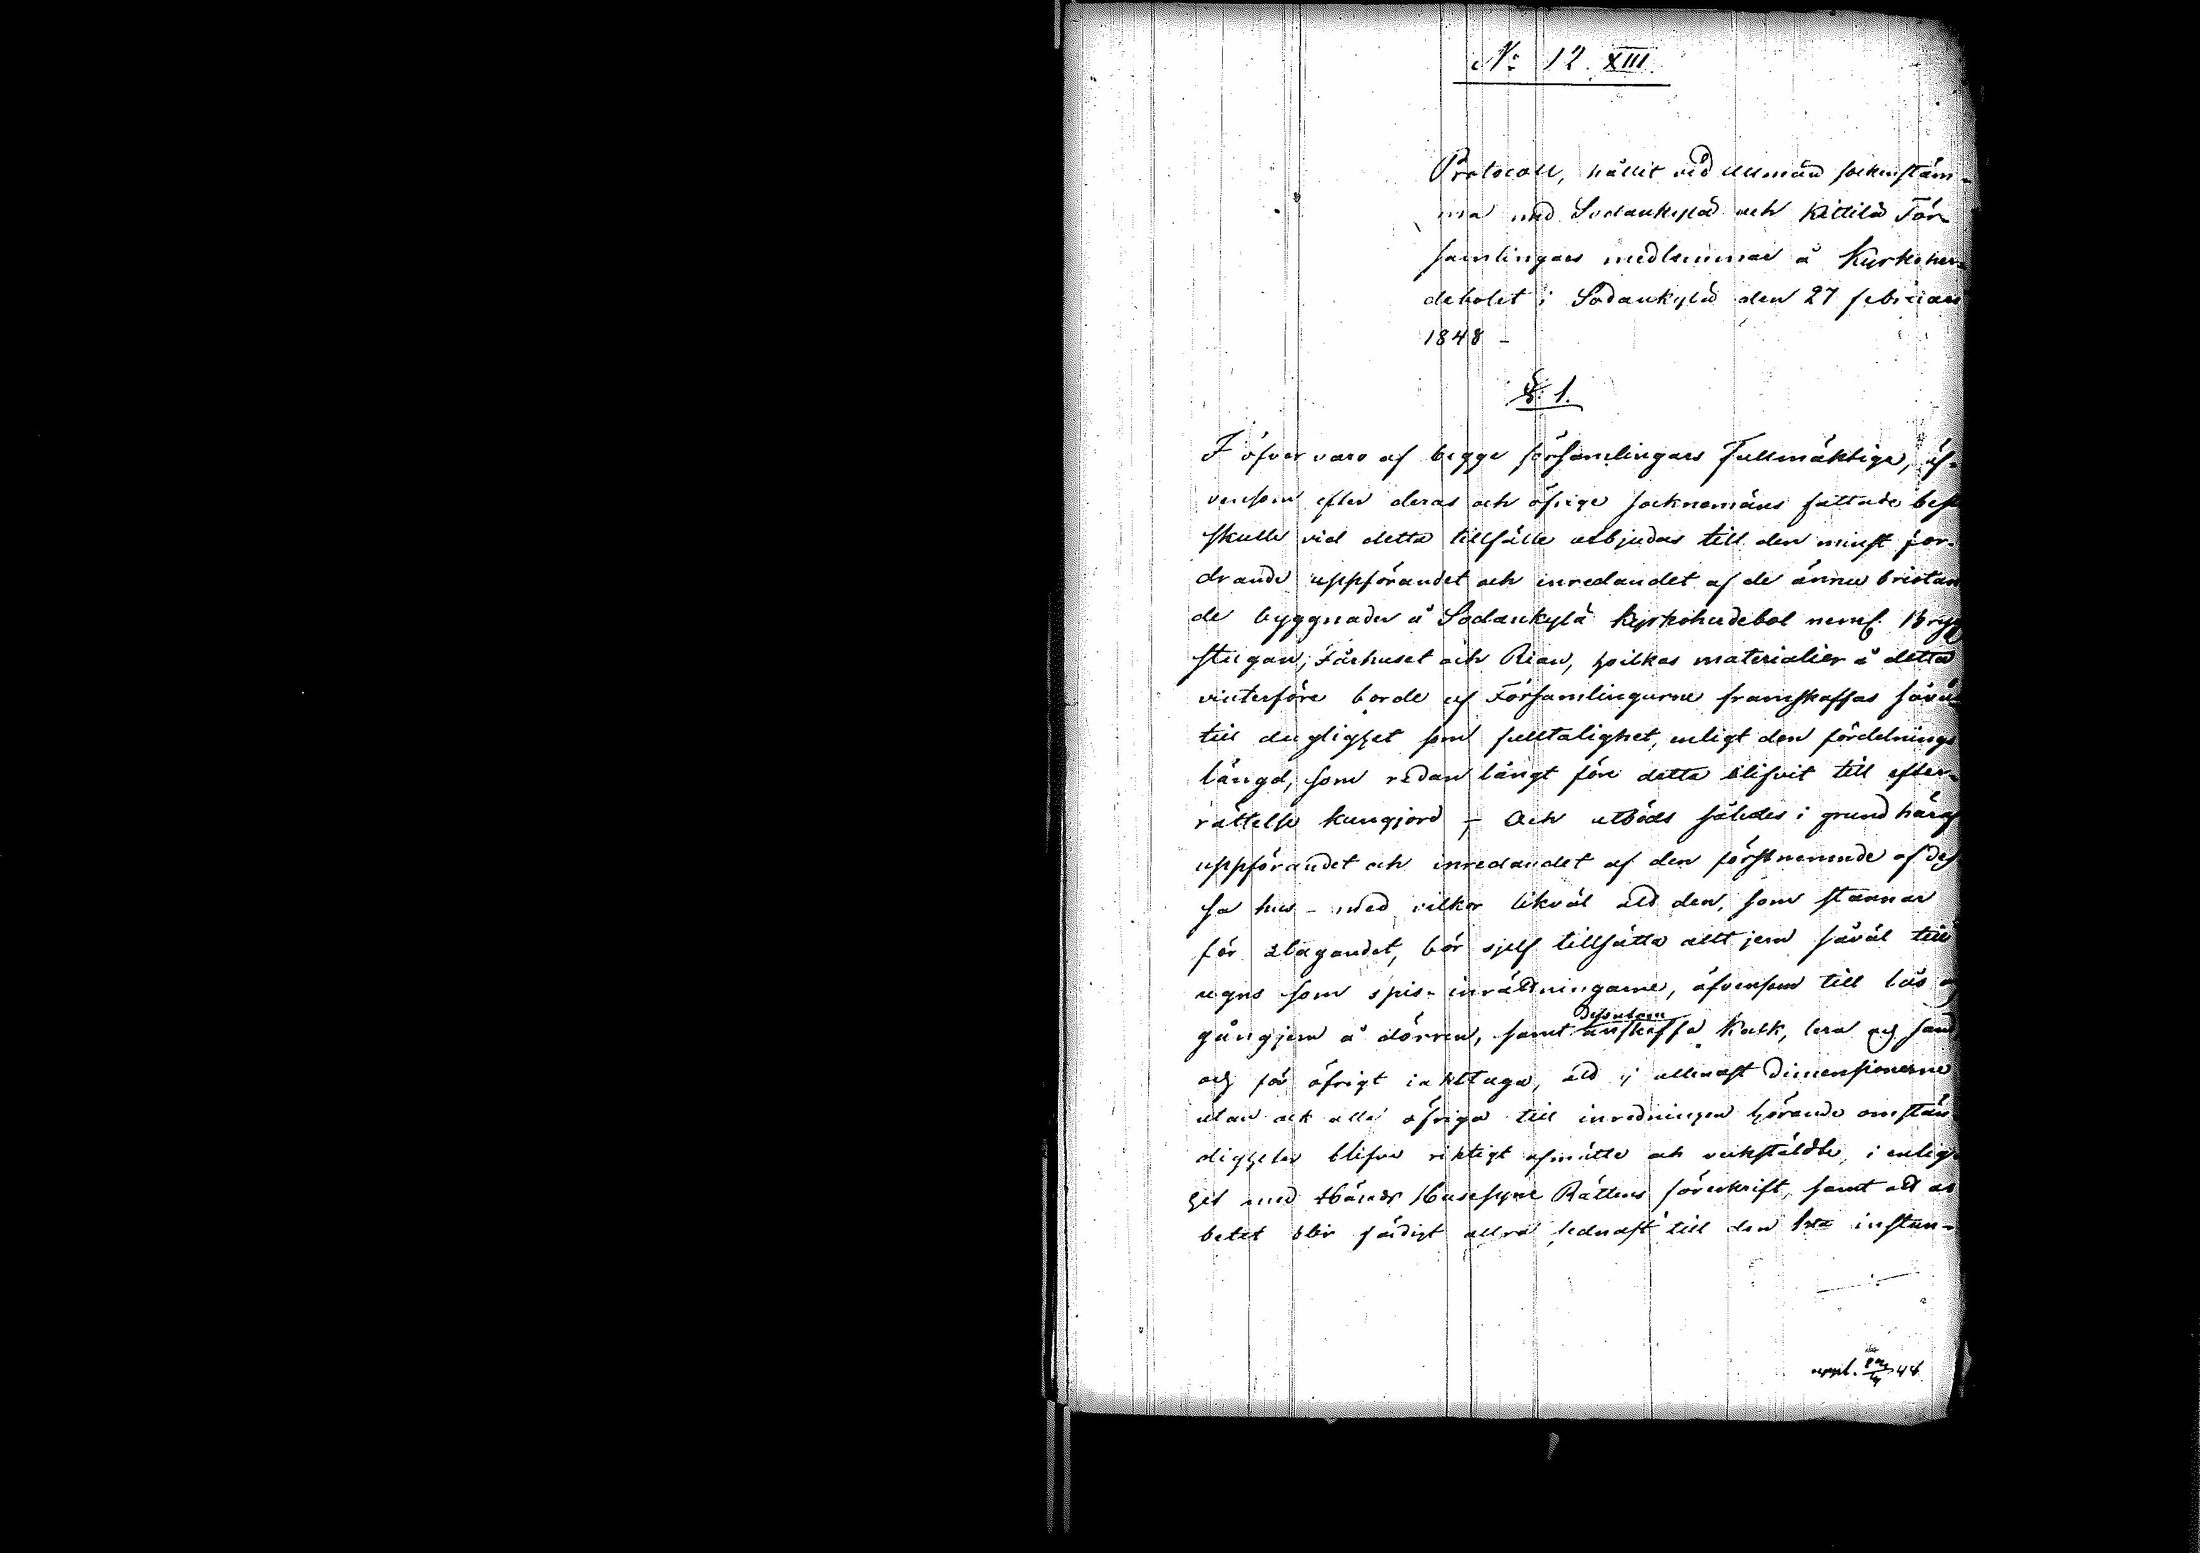 N: 12. XIII.
Protocoll, hållit vid allmän sockenstäm-
ma med Sodankylä och Kittilä För-
samlingars medlemmar å Kyrkoher-
debolet i Sodankylä den 27 februari
1848 -
§ 1.
I öfvervaro af begge församlingars Fullmäktige, äf-
vensom efter deras och öfrige socknemäns fattade
skulle vid detta tillfälle utbjudas till den minst for-
drande uppförandet och inredandet af de ännu bristan
de byggnader å Sodankylä Kyrkoherdebol neml. Bryg
stugan, Fårhuset och Rian, hvilkas materialier å detta
vinterföre borde af Församlingarne framskaffas såväl
till duglighet som fulltalighet, enligt den fördelnings
längd, som redan långt före detta blifvit till efter-
rättelse kungjord - Och utböds således i grund häraf
uppförandet och inredandet af den förstnemnde af des
sa hus - med vilkor likväl att den, som stannar
för åtagandet, bör sjelf tillsätta allt jern såväl till
ugns som spis-inrättningarne, äfvensom till lås o
gångjern å dörren, samt dessutom anskaffa Kalk, lera och sand
och för öfrigt iakttaga, att ej allenast dimensionerne
utan ock alla öfriga till inredningen hörande omstän
digheter blifva riktigt afmätte och verkstäldte, i enlig
het med Härads Husesyne Rättens föreskrift, samt att ar
betet blir färdigt allra sednast till den 1sta instun-
44